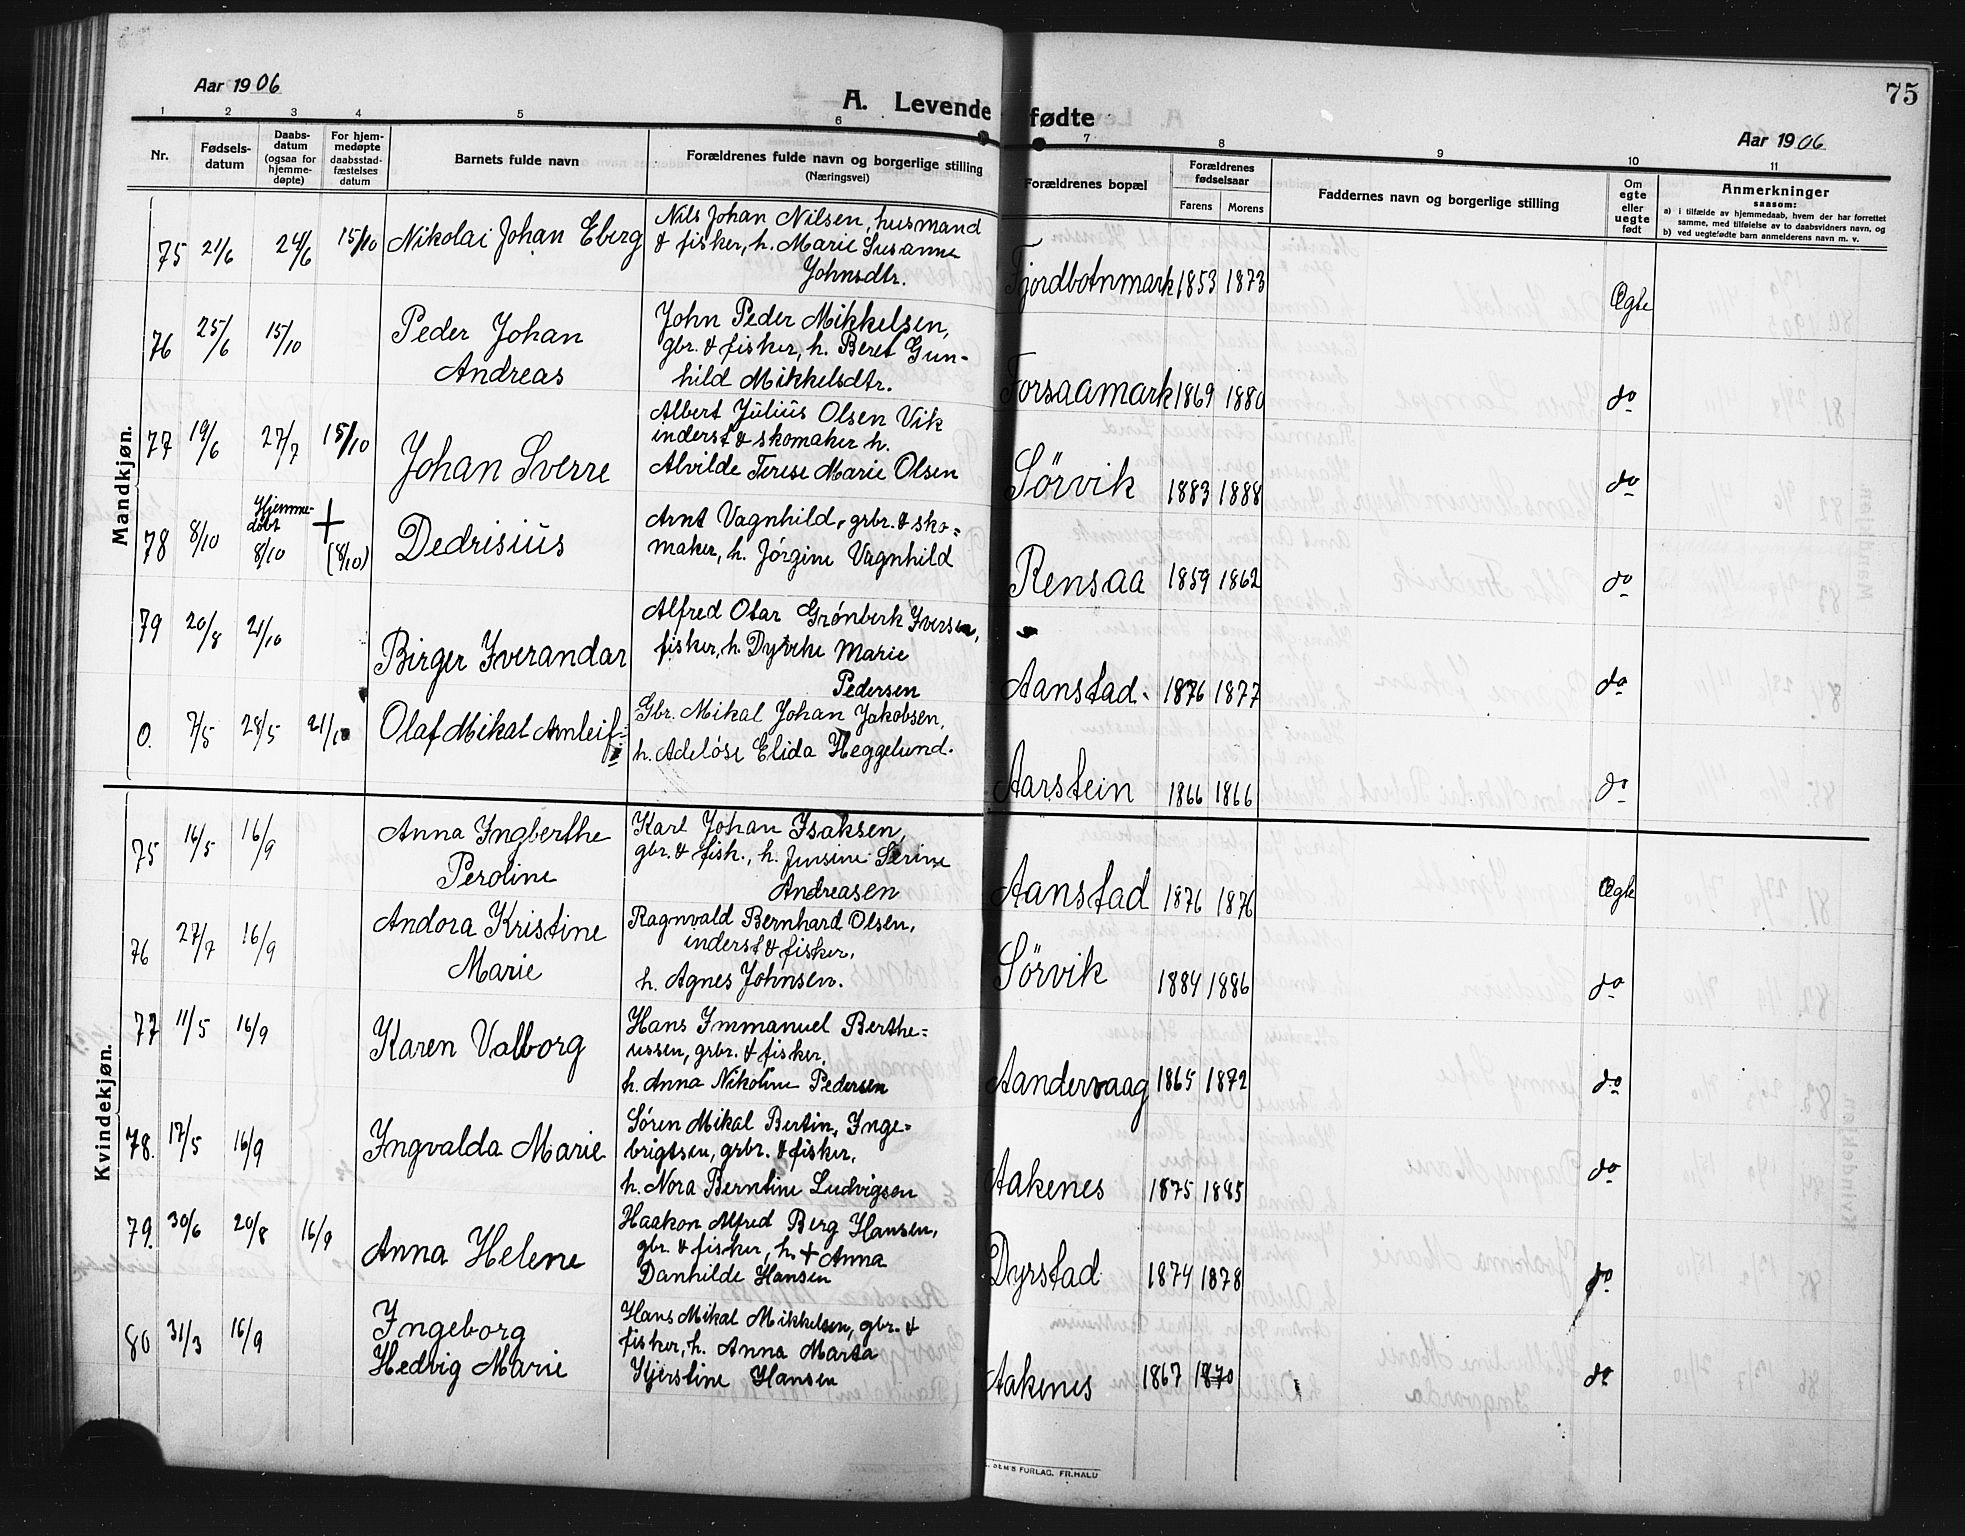 Aar 1906
A. Levende fødte
75
Aar 1906
1 2 3 4 5 6 7 8 9 10 11
Nr.
Fødsels-
datum
Daabs-
datum
(ogsaa for
hjemme-
døpte)
For hjem-
medøpte
daabsstad-
fæstelses
datum
Barnets fulde navn
Forældrenes fulde navn og borgerlige stilling
(Næringsvei)
Forældrenes bopæl
Forældrenes
fødselsaar
Farens Morens
Faddernes navn og borgerlige stilling
Om
egte
eller
uegte
født
Anmerkninger
saasom:
a) i tilfælde av hjemmedaab, hvem der har forrettet
samme, med tilføielse av to daabsvidners navn, og
b) ved uegtefødte barn anmelderens navn m. v.
Mandkjøn.
75 21/6 24/6 15/10 Nikolai Johan Eberg
Nils Johan Nilsen, husmand
& fisker, h. Marie Susanna
Johnsdtr.
Fjordbotnmark 1853 1873 Ægte
76 25/6 15/10 Peder Johan
Andreas
John Peder Mikkelsen,
gbr. & fisker, h. Beret Gun-
hild Mikkelsdtr.
Forsaamark 1869 1880 do
77 19/6 27/7 15/10 Johan Sverre
Albert Julius Olsen Vik
inderst & skomaker h.
Alvilde Terese Marie Olsen
Sörvik 1883 1888 do
78 8/10 Hjemme-
döbt
8/10 + (8/10) Dedrisius
Arnt Vagnhild, grbr. & sko=
maker, h. Jörgine Vagnhild
Rensaa 1859 1862 do
79 20/8 21/10 Birger Iverandar
Alfred Otar Grønberk Iversen,
fisker, h. Dyveke Marie
Pedersen
Aanstad. 1876 1877 do
0. 7/5 28/5 21/10 Olaf Mikal Arnleif
Gbr. Mikal Johan Jakobsen,
h. Adelöse Elida Heggelund.
Aarstein 1866 1866 do
Kvindekjøn.
75 16/5 16/9 Anna Ingberthe
Peroline
Karl Johan Isaksen,
gbr. & fisk., h. Jensine Serine
Andreasen
Aanstad 1876 1876 Ægte
76 27/7 16/9 Andora Kristine
Marie
Ragnvald Bernhard Olsen,
inderst & fisker,
h. Agnes Johnsen.
Sörvik 1884 1886 do
77 11/5 16/9 Karen Valborg
Hans Immanuel Berthe=
ussen, grbr. & fisker,
h. Anna Nikoline Pedersen
Aandervaag 1865 1872 do
78. 17/5 16/9 Ingvalda Marie
Søren Mikal Bertin, Inge=
brigtsen, grbr. & fisker,
h. Nora Berntine Ludvigsen
Aakenes 1875 1885 do
79. 30/6 20/8 16/9 Anna Helene
Haakon Alfred Berg Hansen,
gbr. & fisker, h. + Anna
Danhilde Hansen
Dyrstad 1874 1878 do
80 31/3 16/9 Ingeborg
Hedvig Marie
Hans Mikal Mikkelsen, gbr. &
fisker, h. Anna Marta
Kjerstine Hansen
Aakenes 1867 1870 do
FORLAG, FR.HALD